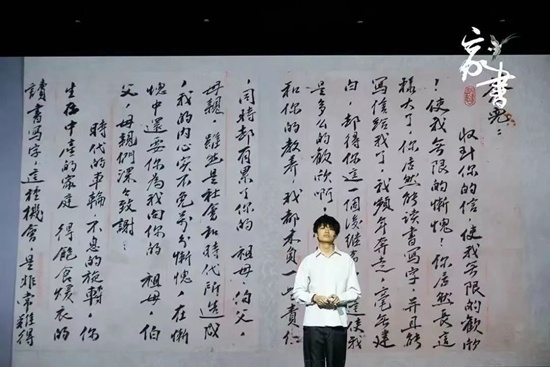 家書
收到你的信,使我無限的歡欣
!使我無限的慚愧!你居然長這
樣大了,你居然能讀書寫字,並且能
寫信給我了,我頻年奔走,毫無建
白,却得你這一個後継 使我
是多么的歡欣啊!
和你的教养,我都未負一些責任
,同時却有累了你的祖母,伯父,
母親,雖然是社會和時代所造成
,我的内心實不免萬分慚愧,在慚
愧中還要你為我向你的祖母,伯
父,母親們深々致謝!
時代的車輪,不息的旋轉,你
生在中產的家庭 得飽食煖衣的
讀書寫字,這種機會,是非常難得